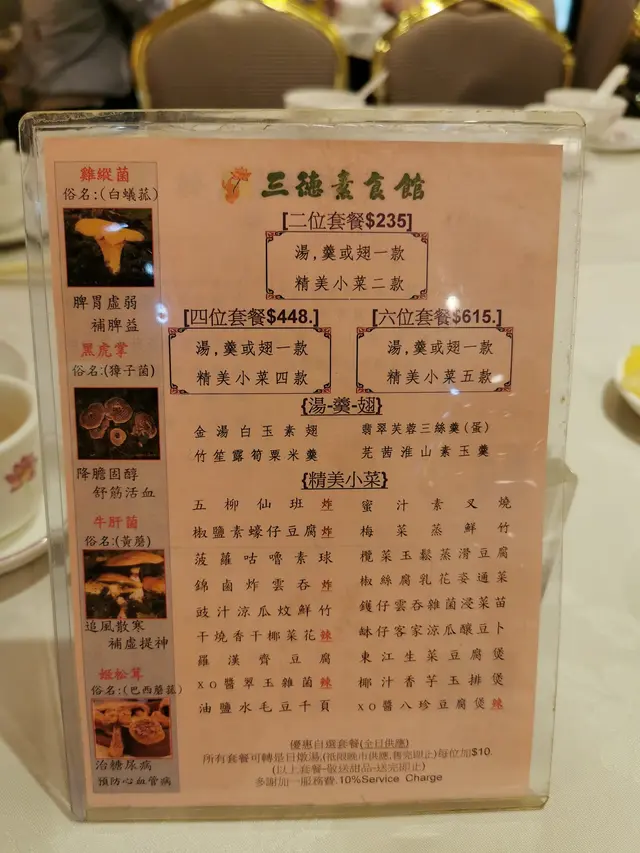 三德素食館
[二位套餐$235]
湯,羹或翅一款
精美小菜二款
[四位套餐$448.]
湯,羹或翅一款
精美小菜四款
[六位套餐$615.]
湯,羹或翅一款
精美小菜五款
{湯-羹-翅}
金湯白玉素翅
翡翠芙蓉三絲羹(蛋)
竹笙露筍粟米羹
芫茜淮山素玉羹
{精美小菜}
五柳仙班炸
蜜汁素叉燒
椒鹽素蠔仔豆腐炸
梅菜蒸鮮竹
菠蘿咕嚕素球
欖菜玉鬆蒸滑豆腐
錦鹵炸雲吞炸
椒絲腐乳花姿通菜
豉汁涼瓜炆鮮竹
鑊仔雲吞雜菌浸菜苗
干燒香干椰菜花辣
砵仔客家涼瓜釀豆卜
羅漢齋豆腐
東江生菜豆腐煲
XO醬翠玉雜菌辣
椰汁香芋玉排煲
油鹽水毛豆千頁
XO醬八珍豆腐煲辣
優惠自選套餐(全日供應)
所有套餐可轉是日燉湯,(祗限晚市供應,售完即止)每位加$10.
(以上套餐-敬送甜品-送完即止)
多謝加一服務費.10%Service Charge
雞縱菌
俗名:(白蟻菰)
脾胃虛弱
補脾益
黑虎掌
俗名:(獐子菌)
降膽固醇
舒筋活血
牛肝菌
俗名:(黃蘑)
追風散寒
補虛提神
姬松茸
俗名:(巴西蘑菰)
治糖尿病
預防心血管病